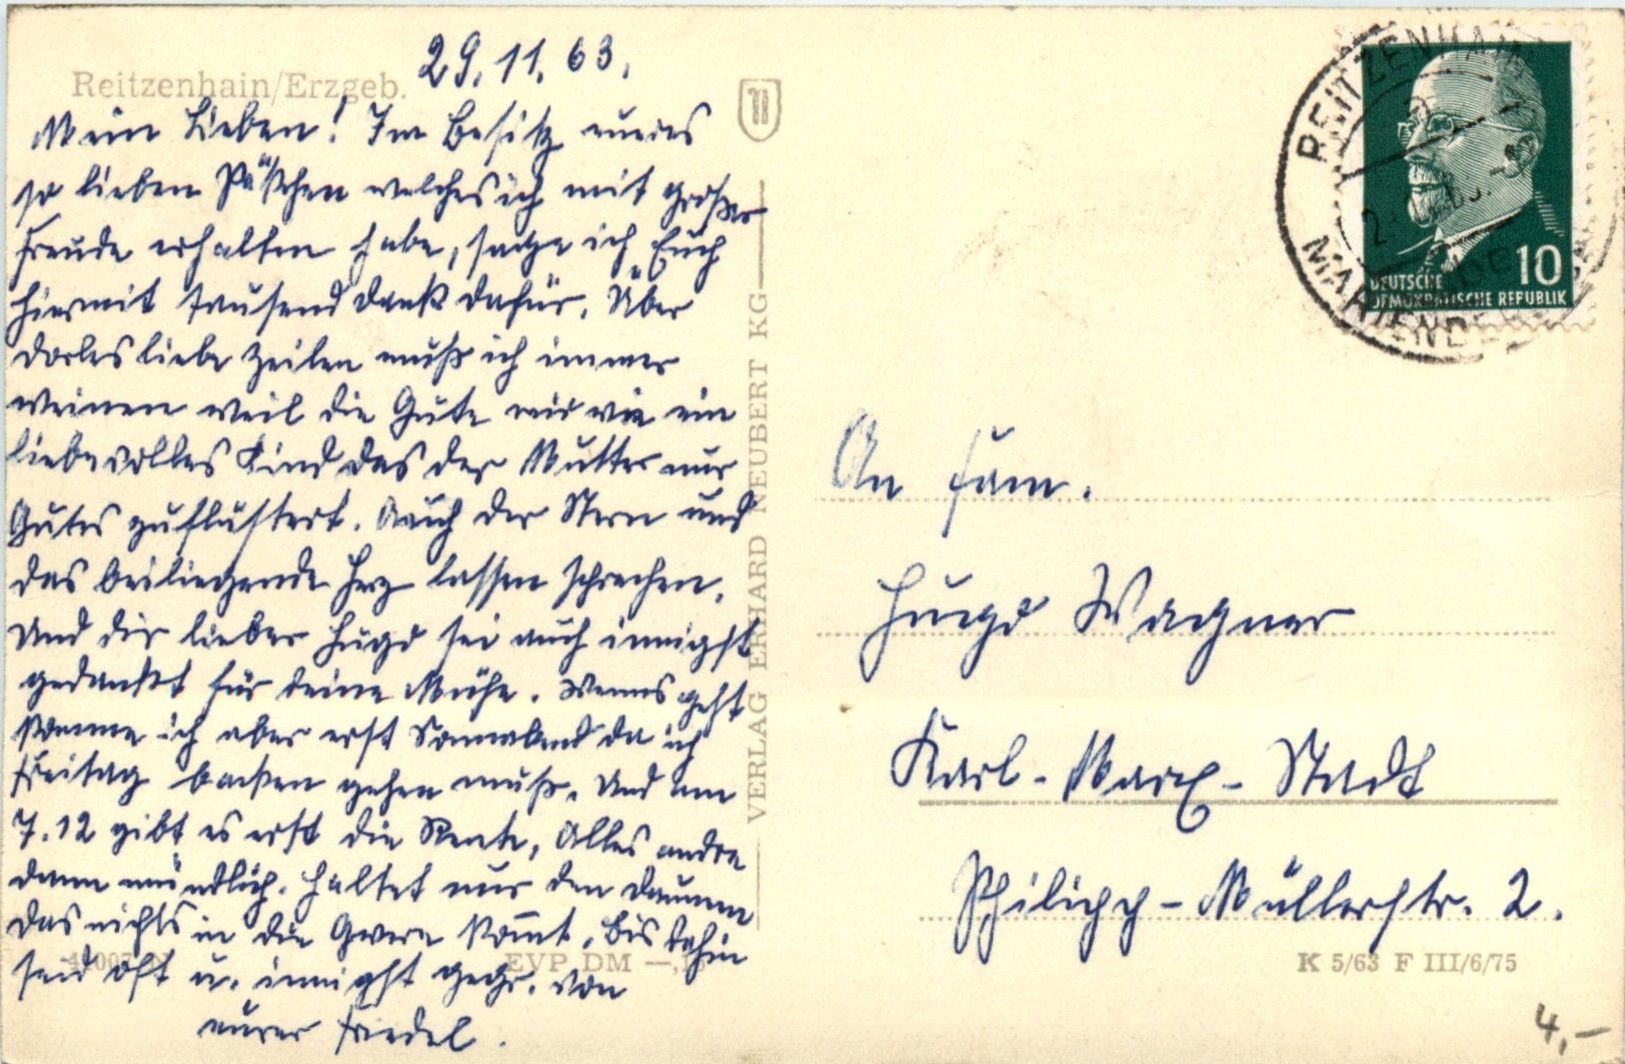 29.11.63.
Reitzenhain/Erzgeb.
Mein Lieben! Im Besitz eueres
so lieben Päckchen welches ich mit großer
Freude erhalten habe, sage ich Euch
hiermit tausend Dank dafür. Über
liebe Zeilen muß ich immer
weinen weil die Güte mir wie ein
liebevolles Kind das der Mutter nur
Gutes zuflüstert. Auch der Stern und
das beiliegende Herz lassen sprechen.
Und dir lieber Hugo sei auch innigst
gedankt für deine Mühe. Wenns geht
komme ich aber erst Sonnabend da ich
Freitag backen gehen muß. Und am
7.12 gibt es erst die Rente, Alles andre
dann mündlich. Haltet nur den Daumen
das nichts in die Quere kommt. Bis dahin
seid oft u. innigst gegr. von
eurer Friedel.
EVP DM —,
VERLAG ERHARD NEUBERT KG
REITZENHAIN
MARIENBERG
DEUTSCHE
DEMOKRATISCHE REPUBLIK
10
An Fam.
Hugo Wagner
Karl-Marx-Stadt
Philipp-Müllerstr. 2.
K 5/63 F III/6/75
4,-